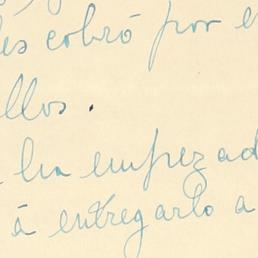 les cobró por e
llos.
ha empezad
á entregarlo a